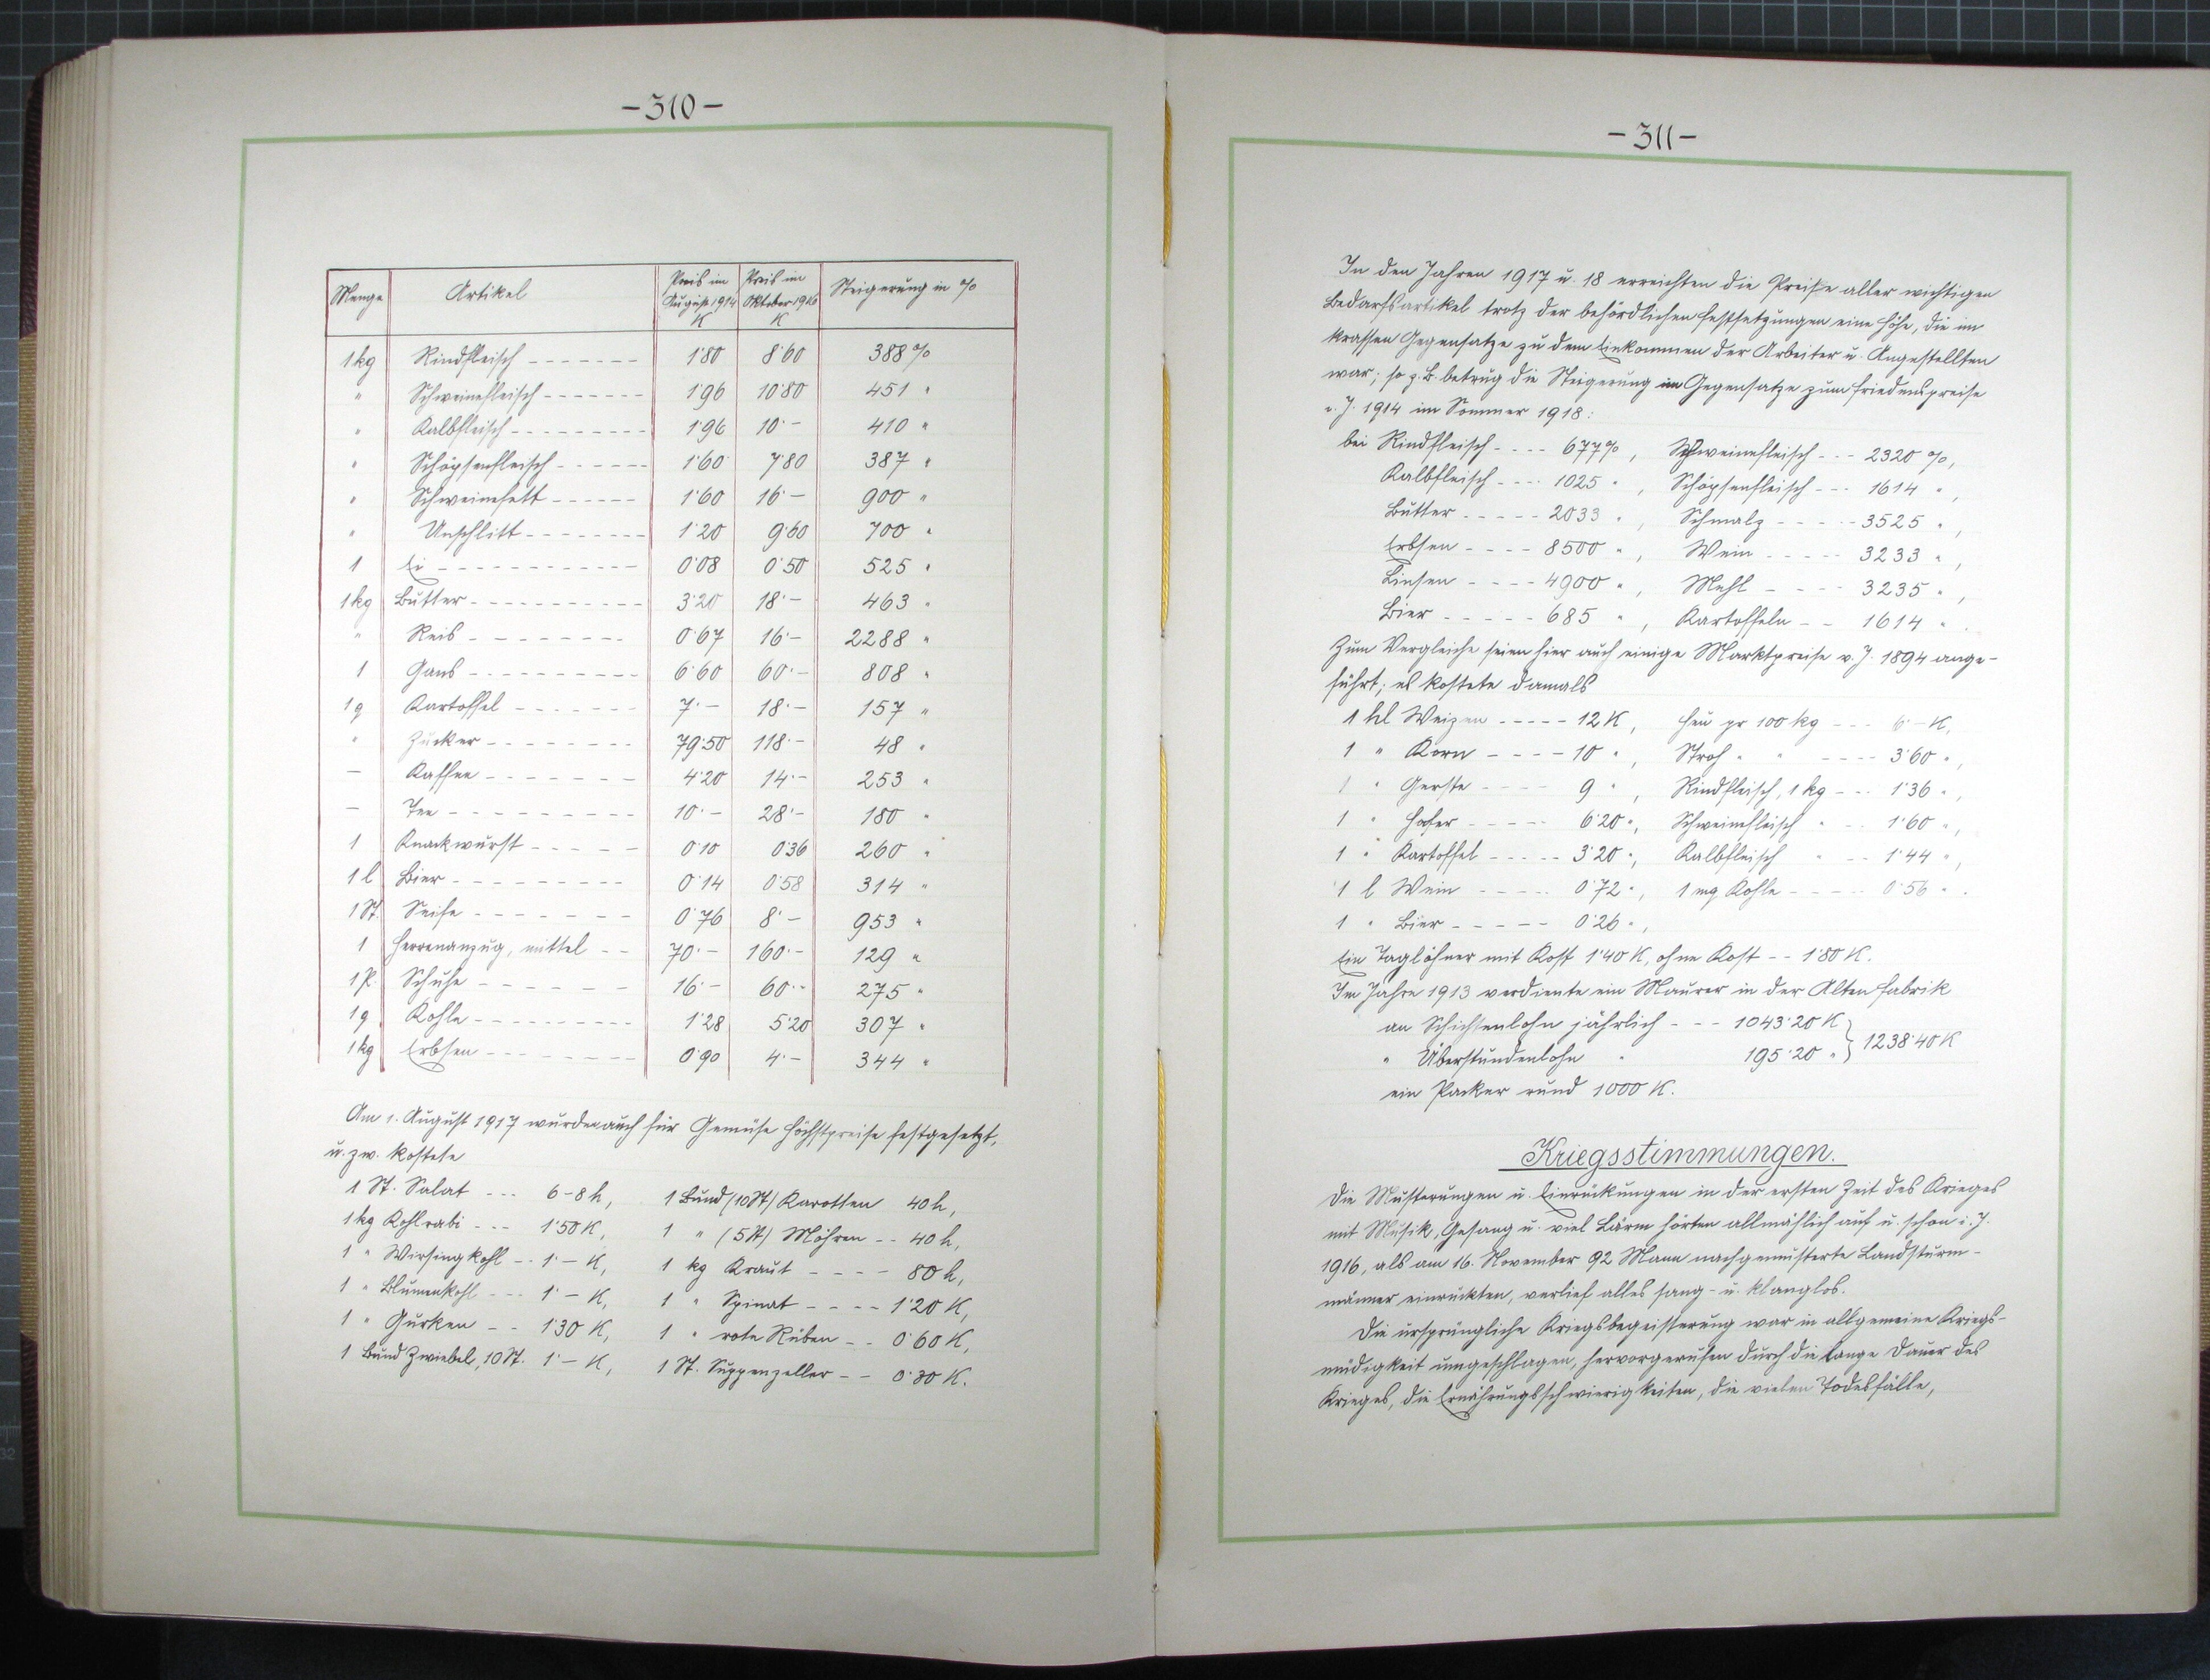 -310-
Menge Artikel Preis im August 1914 K Preis im Oktober 1916 K Steigerung in %
1kg Rindfleisch ------- 1·80 8·60 388%
" Schweinefleisch ------- 1·96 10·80 451 "
" Kalbfleisch --------- 1·96 10·- 410 "
" Schöpsenfleisch ------ 1·60 7·80 387 "
" Schweinefett ------ 1·60 16·- 900 "
" Unschlitt -------- 1·20 9·60 700 "
1 Ei ------------ 0·08 0·50 525 "
1kg Butter ---------- 3·20 18·- 463 "
" Reis -------- 0·67 16·- 2288 "
1 Gans ---------- 6·60 60·- 808 "
1q Kartoffel ------- 7·- 18·- 157 "
" Zucker -------- 79·50 118·- 48 "
— Kaffee ------- 4·20 14·- 253 "
— Tee --------- 10·- 28·- 180 "
1 Knackwurst ----- 0·10 0·36 260 "
1 l Bier --------- 0·14 0·58 314 "
1 St. Seife ------- 0·76 8·- 953 "
1 Herrenanzug, mittel -- 70·- 160·- 129 "
1 P. Schuhe ------ 16·- 60·- 275 "
1q Kohle --------- 1·28 5·20 307 "
1kg Erbsen -------- 0·90 4·- 344 "
Am 1. August 1917 wurden auch für Gemüse Höchstpreise festgesetzt,
u. zw. kostete
1 St. Salat --- 6-8 h, 1 Bund (10 St) Karotten 40 h,
1 kg Kohlrabi --- 1·50 K, 1 " (5 St) Möhren -- 40 h,
1 " Wirsingkohl -- 1·- K, 1 kg Kraut ---- 80 h,
1 " Blumenkohl --- 1·- K, 1 " Spinat ---- 1·20 K,
1 " Gurken -- 1·30 K, 1 " rote Rüben -- 0·60 K,
1 Bund Zwiebel, 10 St. 1·- K, 1 St. Suppenzeller -- 0·30 K.
-311-
In den Jahren 1917 u. 18 erreichten die Preise aller wichtigen
Bedarfsartikel trotz der behördlichen Festsetzungen eine Höhe, die im
krassen Gegensatze zu dem Einkommen der Arbeiter u. Angestellten
war; so z. B. betrug die Steigerung im Gegensatze zum Friedenspreise
v. J. 1914 im Sommer 1918:
bei Rindfleisch ---- 677%, Schweinefleisch --- 2320 %,
Kalbfleisch ---- 1025 ", Schöpsenfleisch --- 1614 ",
Butter ----- 2033 ", Schmalz ----- 3525 ",
Erbsen ---- 8500 ", Wein ----- 3233 ",
Linsen ---- 4900 ", Mehl ---- 3235 ",
Bier ----- 685 ", Kartoffeln -- 1614 ".
Zum Vergleiche seien hier auch einige Marktpreise v. J. 1894 ange-
führt; es kostete damals
1 hl Weizen ----- 12 K, Heu pr 100 kg --- 6·- K,
1 " Korn ---- 10 ", Stroh " " ---- 3·60 ",
1 " Gerste ---- 9 ", Rindfleisch, 1 kg --- 1·36 ",
1 " Hafer ----- 6·20 ", Schweinefleisch " -- 1·60 ",
1 " Kartoffel ----- 3·20 ", Kalbfleisch " -- 1·44 ",
1 l Wein ----- 0·72 ", 1 mq Kohle ---- 0·56 ".
1 " Bier ----- 0·26 ",
Ein Taglöhner mit Kost 1·40 K, ohne Kost -- 1·80 K.
Im Jahre 1913 verdiente ein Maurer in der Alten Fabrik
an Schichtenlohn jährlich --- 1043·20 K
" Überstundenlohn " 195·20 " } 1238·40 K
ein Packer rund 1000 K.
Kriegsstimmungen.
Die Musterungen u. Einrückungen in der ersten Zeit des Krieges
mit Musik, Gesang u. viel Lärm hörten allmählich auf u. schon i. J.
1916, als am 16. November 92 Mann nachgemusterte Landsturm-
männer einrückten, verlief alles sang- u. klanglos.
Die ursprüngliche Kriegsbegeisterung war in allgemeine Kriegs-
müdigkeit umgeschlagen, hervorgerufen durch die lange Dauer des
Krieges, die Ernährungsschwierigkeiten, die vielen Todesfälle,